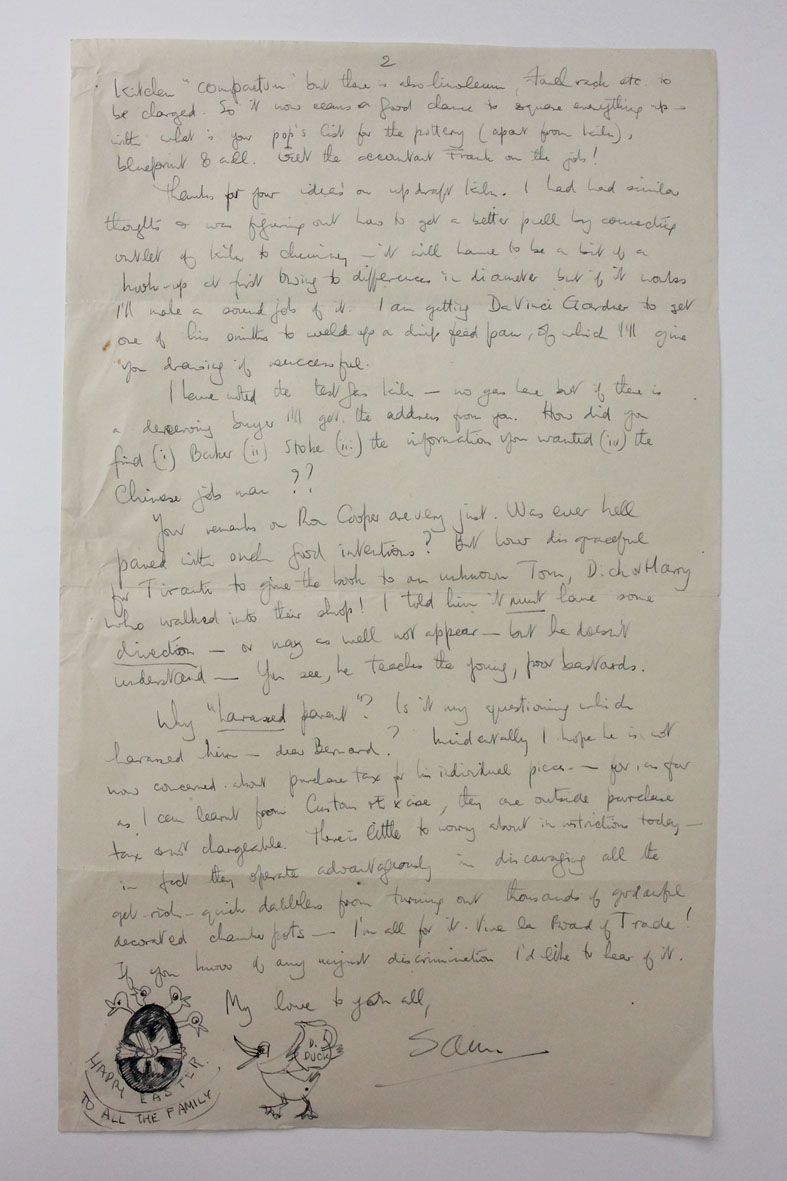 2
Kitchen "compactum" but there is also linoleum, towel rack etc. to
be charged. So it now seems a good chance to square everything up -
with what is your pop's list for the pottery (apart from kiln),
blueprint & all. Get the accountant Frank on the job!
Thanks for your ideas on updraft kiln. I had had similar
thoughts & was figuring out how to get a better pull by connecting
outlet of kiln to chimney - it will have to be a bit of a
hook-up at first owing to differences in diameter but if it works
I'll make a sound job of it. I am getting DaVinci Gardner to get
one of his smiths to weld up a drip feed pan, of which I'll give
you drawing if successful.
I have noted the test gas kiln - no gas here but if there is
a deserving buyer I'll get the address from you. How did you
find (i) Baker (ii) Stoke (iii) the information you wanted (iv) the
Chinese job man ??
Your remarks on Ron Cooper are very just. Was ever hell
paved with such good intentions? But how disgraceful
for Tiranti to give the book to an unknown Tom, Dick or Harry
who walked into their shop! I told him it must have some
direction - or may as well not appear - but he doesn't
understand - You see, he teaches the young, poor bastards.
Why "harassed parent"? Is it my questioning which
harassed him - dear Bernard? Incidentally I hope he is not
now concerned about purchase tax for his individual pieces - for, as far
as I can learnt from Customs & Excise, they are outside purchase
tax & not chargeable. There is little to worry about in restrictions today -
in fact they operate advantageously in discouraging all the
get-rich-quick dabblers from turning out thousands of godawful
decorated chamber pots - I'm all for it. Vive la Board of Trade!
If you know of any unjust discrimination I'd like to hear of it.
My love to you all,
Sam
HAPPY EASTER.
TO ALL THE FAMILY
D. D
DUCK